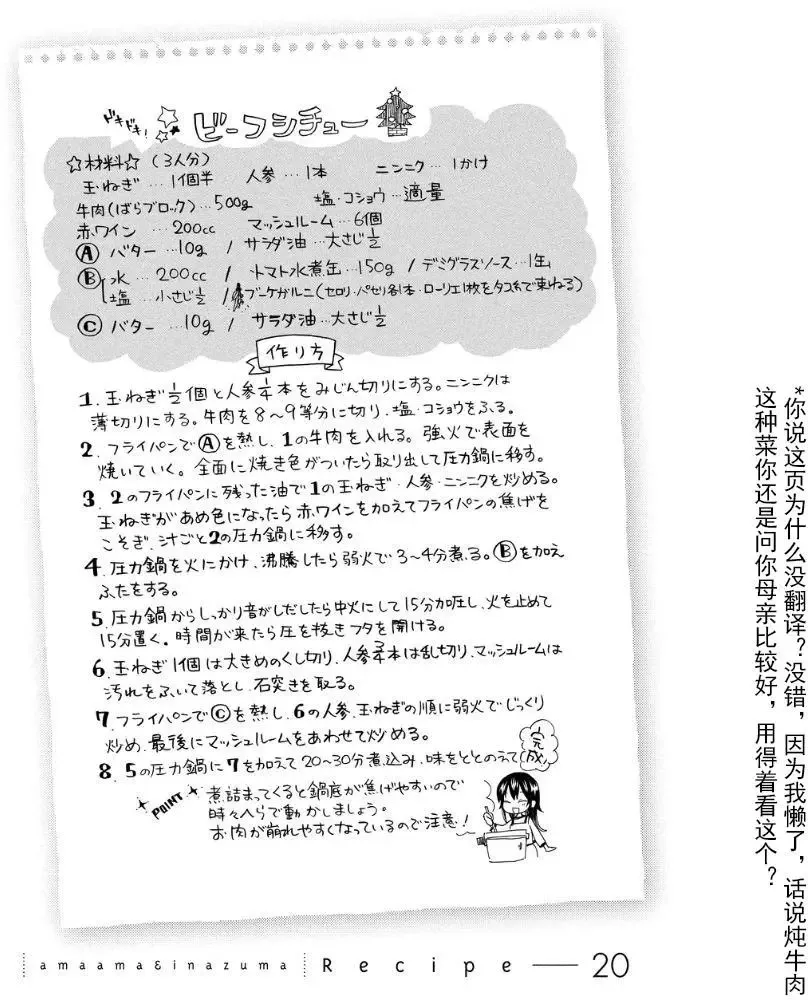 ドキドキ!
ビーフシチュー
☆材料☆ (3人分)
玉ねぎ…1個半 人参…1本 ニンニク…1かけ
牛肉(ばらブロック)…500g 塩・コショウ…適量
赤ワイン…200cc マッシュルーム…6個
Ⓐ バター…10g / サラダ油…大さじ1/2
Ⓑ 水…200cc / トマト水煮缶…150g / デミグラスソース…1缶
塩…小さじ1/2 / ブーケガルニ(セロリ・パセリ各1本・ローリエ1枚をタコ糸で束ねる)
Ⓒ バター…10g / サラダ油…大さじ1/2
作り方
1. 玉ねぎ1/2個と人参1/4本をみじん切りにする。ニンニクは
薄切りにする。牛肉を8~9等分に切り、塩・コショウをふる。
2. フライパンでⒶを熱し、1の牛肉を入れる。強火で表面を
焼いていく。全面に焼き色がついたら取り出して圧力鍋に移す。
3. 2のフライパンに残った油で1の玉ねぎ・人参・ニンニクを炒める。
玉ねぎがあめ色になったら赤ワインを加えてフライパンの焦げを
こそぎ、汁ごと2の圧力鍋に移す。
4. 圧力鍋を火にかけ、沸騰したら弱火で3~4分煮る。Ⓑを加え
ふたをする。
5. 圧力鍋からしっかり音がしだしたら中火にして15分加圧し、火を止めて
15分置く。時間が来たら圧を抜きフタを開ける。
6. 玉ねぎ1個は大きめのくし切り、人参3/4本は乱切り、マッシュルームは
汚れをふいて落とし、石突きを取る。
7. フライパンでⒸを熱し、6の人参、玉ねぎの順に弱火でじっくり
炒め、最後にマッシュルームをあわせて炒める。
8. 5の圧力鍋に7を加えて20~30分煮込み、味をととのえて
完成
POINT
煮詰まってくると鍋底が焦げやすいので
時々へらで動かしましょう。
お肉が崩れやすくなっているので注意!
amaama&inazuma Recipe 20
*你说这页为什么没翻译?没错,因为我懒了,话说炖牛肉
这种菜你还是问你母亲比较好,用得着看这个?